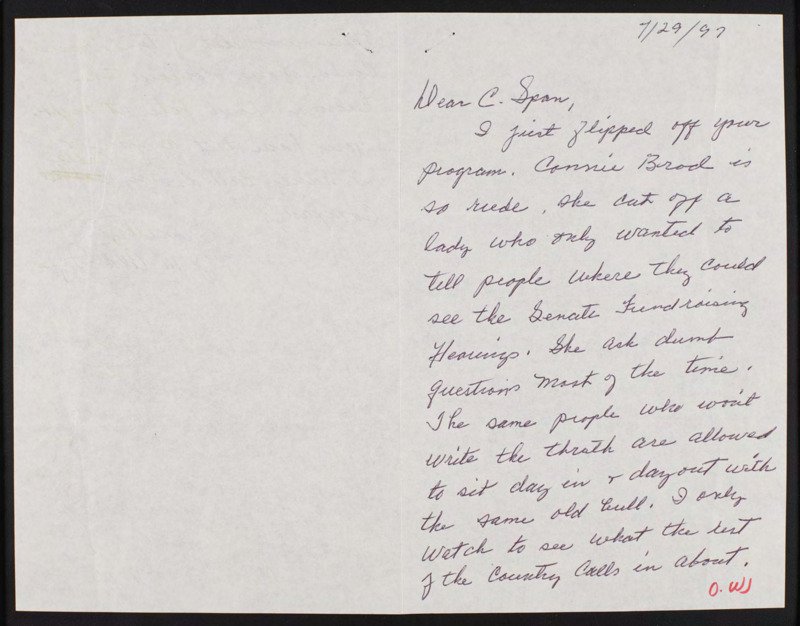 7/29/97
Dear C. Span,
I just flipped off your
program. Connie Brod is
so rude, she cut off a
lady who only wanted to
tell people where they could
see the Senate Fundraising
Hearings. She ask dumb
questions most of the time.
The same people who won't
write the thruth are allowed
to sit day in & day out with
the same old bull. I only
watch to see what the rest
of the Country Calls in about.
O. W